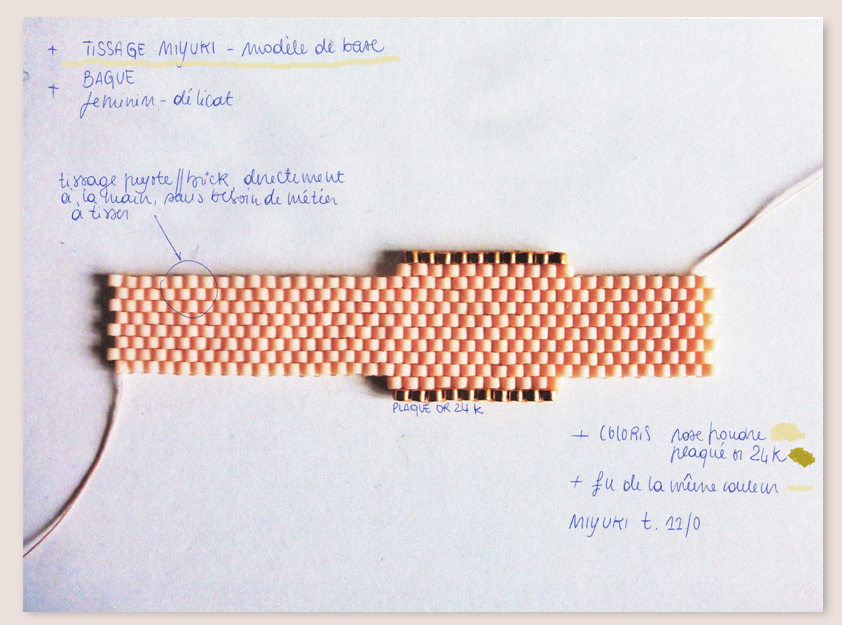 + TISSAGE MIYUKI - modèle de base
+ BAGUE
feminin - délicat
tissage peyote // brick, directement
à la main, sans besoin de métier
à tisser
PLAQUE OR 24 K
+ COLORIS rose poudre
plaqué or 24K
+ fil de la même couleur
MIYUKI t. 11/0